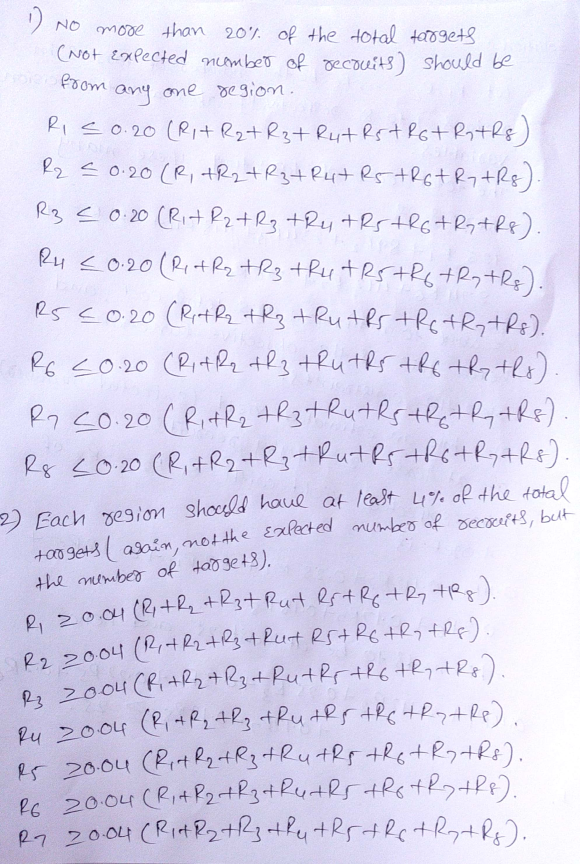 1) No more than 20% of the total targets
(Not Expected number of recruits) should be
from any one region.
R1 ≤ 0.20 (R1+ R2+ R3+ R4+ R5+ R6+ R7+R8)
R2 ≤ 0.20 (R1 +R2+R3+R4+ R5+R6+R7+R8).
R3 ≤ 0.20 (R1+ R2+R3 +R4 +R5+R6+R7+R8).
R4 ≤ 0.20 (R1+R2 +R3 +R4 +R5+R6 +R7+R8).
R5 ≤ 0.20 (R1+R2 +R3 +R4+R5 +R6+R7+R8).
R6 ≤ 0.20 (R1+R2 +R3 +R4+R5 +R6 +R7+R8).
R7 ≤ 0.20 (R1+R2 +R3+R4+R5+R6+R7+R8).
R8 ≤ 0.20 (R1+R2+R3+R4+R5+R6+R7+R8).
2) Each region should have at least 4% of the total
targets (again, not the Expected number of recruits, but
the number of targets).
R1 ≥ 0.04 (R1+R2 +R3+R4+ R5+R6+R7 +R8).
R2 ≥ 0.04 (R1+R2+R3+R4+ R5+R6+R7+R8).
R3 ≥ 0.04 (R1+R2+R3+R4+R5+R6 +R7+R8).
R4 ≥ 0.04 (R1+R2+R3 +R4+R5 +R6+R7+R8).
R5 ≥ 0.04 (R1+R2+R3+R4+R5 +R6+R7+R8).
R6 ≥ 0.04 (R1+R2+R3+R4+R5 +R6+R7+R8).
R7 ≥ 0.04 (R1+R2+R3 +R4+R5+R6+R7+R8).